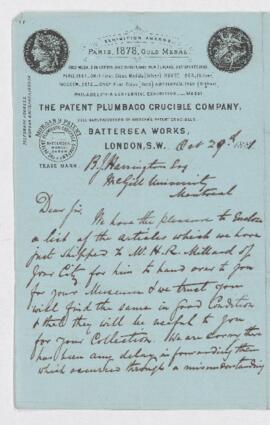 EXHIBITION AWARDS.
PARIS, 1878, GOLD MEDAL.
THE PATENT PLUMBAGO CRUCIBLE COMPANY,
BATTERSEA WORKS,
LONDON, S.W. Oct 29th 1881
MORGAN'S PATENT
TRADE MARK
B.J. Harrington Esq
McGill University
Montreal
Dear Sir,
We have the pleasure to enclose
a list of the articles which we have
just shipped to Mr H.R. Millard of
your City for him to hand over to you
for your Museum & we trust you
will find the same in good Condition
& that they will be useful to you
for your Collection. We are sorry there
has been any delay in forwarding them
which occurred through a misunderstanding